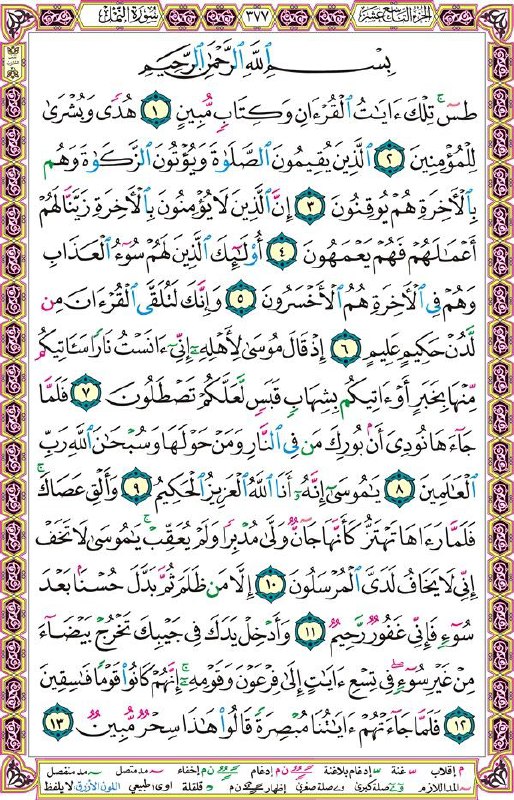 الجزء التاسع عشر
٣٧٧
سورة النمل
بِسْمِ ٱللَّهِ ٱلرَّحْمَٰنِ ٱلرَّحِيمِ
طسٓ ۚ تِلْكَ ءَايَٰتُ ٱلْقُرْءَانِ وَكِتَابٍ مُّبِينٍ ١ هُدًى وَبُشْرَىٰ
لِلْمُؤْمِنِينَ ٢ ٱلَّذِينَ يُقِيمُونَ ٱلصَّلَوٰةَ وَيُؤْتُونَ ٱلزَّكَوٰةَ وَهُم
بِٱلْءَاخِرَةِ هُمْ يُوقِنُونَ ٣ إِنَّ ٱلَّذِينَ لَا يُؤْمِنُونَ بِٱلْءَاخِرَةِ زَيَّنَّا لَهُمْ
أَعْمَٰلَهُمْ فَهُمْ يَعْمَهُونَ ٤ أُو۟لَٰٓئِكَ ٱلَّذِينَ لَهُمْ سُوٓءُ ٱلْعَذَابِ
وَهُمْ فِى ٱلْءَاخِرَةِ هُمُ ٱلْأَخْسَرُونَ ٥ وَإِنَّكَ لَتُلَقَّى ٱلْقُرْءَانَ مِن
لَّدُنْ حَكِيمٍ عَلِيمٍ ٦ إِذْ قَالَ مُوسَىٰ لِأَهْلِهِۦٓ إِنِّىٓ ءَانَسْتُ نَارًا سَـَٔاتِيكُم
مِّنْهَا بِخَبَرٍ أَوْ ءَاتِيكُم بِشِهَابٍ قَبَسٍ لَّعَلَّكُمْ تَصْطَلُونَ ٧ فَلَمَّا
جَآءَهَا نُودِىَ أَنۢ بُورِكَ مَن فِى ٱلنَّارِ وَمَنْ حَوْلَهَا وَسُبْحَٰنَ ٱللَّهِ رَبِّ
ٱلْعَٰلَمِينَ ٨ يَٰمُوسَىٰٓ إِنَّهُۥٓ أَنَا ٱللَّهُ ٱلْعَزِيزُ ٱلْحَكِيمُ ٩ وَأَلْقِ عَصَاكَ ۚ
فَلَمَّا رَءَاهَا تَهْتَزُّ كَأَنَّهَا جَآنٌّ وَلَّىٰ مُدْبِرًا وَلَمْ يُعَقِّبْ ۚ يَٰمُوسَىٰ لَا تَخَفْ
إِنِّى لَا يَخَافُ لَدَىَّ ٱلْمُرْسَلُونَ ١٠ إِلَّا مَن ظَلَمَ ثُمَّ بَدَّلَ حُسْنًۢا بَعْدَ
سُوٓءٍ فَإِنِّى غَفُورٌ رَّحِيمٌ ١١ وَأَدْخِلْ يَدَكَ فِى جَيْبِكَ تَخْرُجْ بَيْضَآءَ
مِنْ غَيْرِ سُوٓءٍ ۖ فِى تِسْعِ ءَايَٰتٍ إِلَىٰ فِرْعَوْنَ وَقَوْمِهِۦٓ ۚ إِنَّهُمْ كَانُوا۟ قَوْمًا فَٰسِقِينَ
١٢ فَلَمَّا جَآءَتْهُمْ ءَايَٰتُنَا مُبْصِرَةً قَالُوا۟ هَٰذَا سِحْرٌ مُّبِينٌ ١٣
م إقلاب غنة إدغام بلاغنة ن م إدغام ن م إخفاء مد متصل مد منفصل
المد اللازم صلة كبرى صلة صغرى إظهار ن م قلقلة اوى: طبيعي اللون الأزرق لا يلفظ